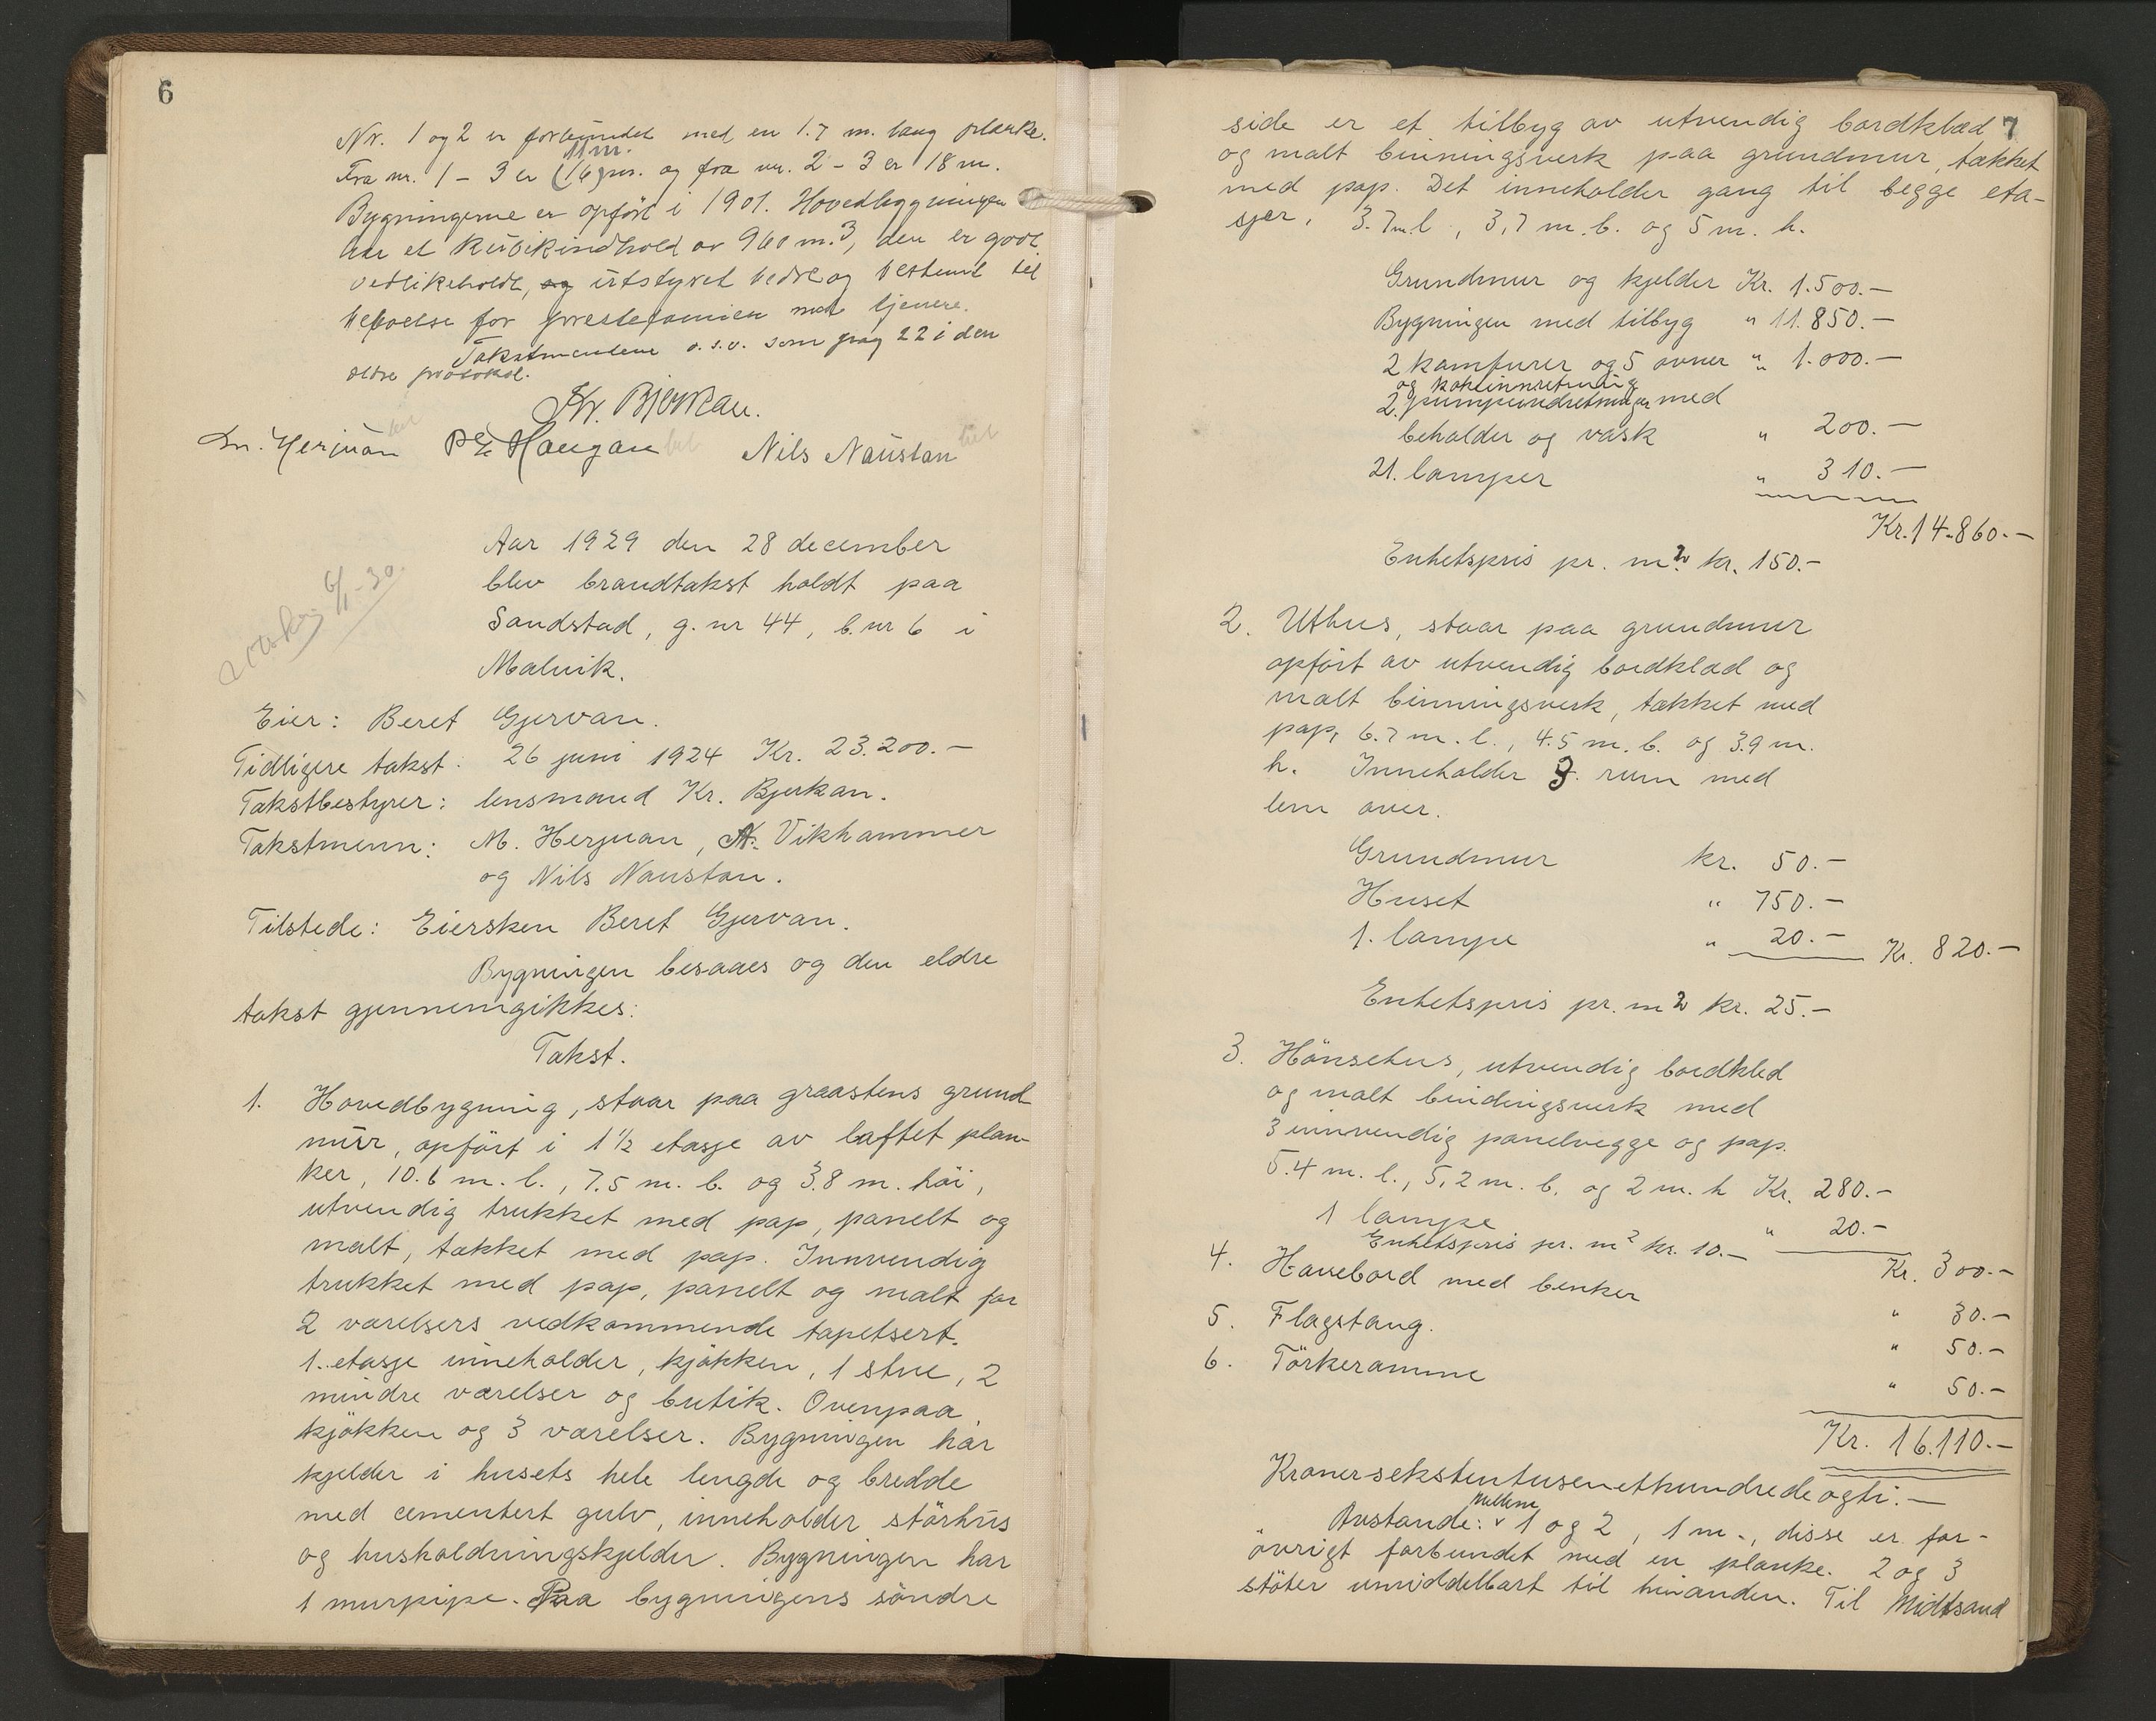 6
Nr. 1 og 2 er forbundet med en 1.7 m. lang planke.
11 m.
Fra nr. 1 – 3 er (16) m. og fra nr. 2 – 3 er 18 m.
Bygningerne er opført i 1901. Hovedbygningen
har et kubikindhold av 960 m.3, den er godt
vedlikeholdt, og utstyret bedre og bestemt til
beboelse for prestefamilien med tjenere.
Takstmendene o.s.v. som pag 22 i den
eldre protokol.
Kr. Bjerkan.
M. Herjuan P. Haugan Nils Naustan
6/1-30.
Aar 1929 den 28 december
blev brandtakst holdt paa
Sandstad, g. nr 44, b. nr 6 i
Malvik.
Eier: Beret Gjervan.
Tidligere takst: 26 juni 1924 Kr. 23.200.–
Takstbestyrer: lensmand Kr. Bjerkan.
Takstmenn: M. Herjuan, A. Vikhammer
og Nils Naustan.
Tilstede: Eiersken Beret Gjervan.
Bygningen besaaes og den eldre
takst gjennemgikkes:
Takst.
1. Hovedbygning, staar paa graastens grund
mur, opført i 1½ etasje av laftet plan-
ker, 10.6 m. l., 7.5 m. b. og 3.8 m. höi,
utvendig trukket med pap, panelt og
malt, tækket med pap. Innvendig
trukket med pap, panelt og malt for
2 værelsers vedkommende tapetsert.
1. etasje inneholder, kjökken, 1 stue, 2
mindre værelser og butik. Ovenpaa,
kjökken og 3 værelser. Bygningen har
kjelder i husets hele lengde og bredde
med cementert gulv, inneholder störhus
og husholdningskjelder. Bygningen har
1 murpipe. Paa bygningens söndre
7
side er et tilbyg av utvendig bordklæd
og malt binningsverk paa grundmur, tækket
med pap. Det inneholder gang til begge eta-
sjer, 3.7 m. l, 3,7 m. b. og 5 m. h.
Grundmur og kjelder Kr. 1.500.–
Bygningen med tilbyg " 11.850.–
2 komfurer og 5 ovner " 1.000.–
og kokeinnretning
2. pumpeindretninger med
beholder og vask " 200.–
21. lamper " 310.–
Kr. 14.860.–
Enhetspris pr. m2 kr. 150.–
2. Uthus, staar paa grundmur
opfört av utvendig bordklæd og
malt binningsverk, tækket med
pap, 6.7 m. l., 4.5 m. b. og 3.9 m.
h. Inneholder 3. rum med
lem over.
Grundmur kr. 50.–
Huset " 750.–
1. lampe " 20.– Kr. 820.–
Enhetspris pr. m2 kr. 25.–
3. Hönsehus, utvendig bordkled
og malt bindingsverk med
3 innvendig panelvegge og pap.
5.4 m. l., 5,2 m. b. og 2 m. h Kr. 280.–
1 lampe " 20.–
Enhetspris pr. m2 kr. 10.–
Kr. 300.–
4. Havebord med benker " 30.–
5. Flagstang. " 50.–
6. Törkeramme " 50.–
Kr. 16.110.–
Kroner sekstentusenethundredeogti.–
mellem
Avstande: v 1 og 2, 1 m., disse er for-
övrigt forbundet med en planke. 2 og 3
stöter umiddelbart til hinanden. Til Midtsand